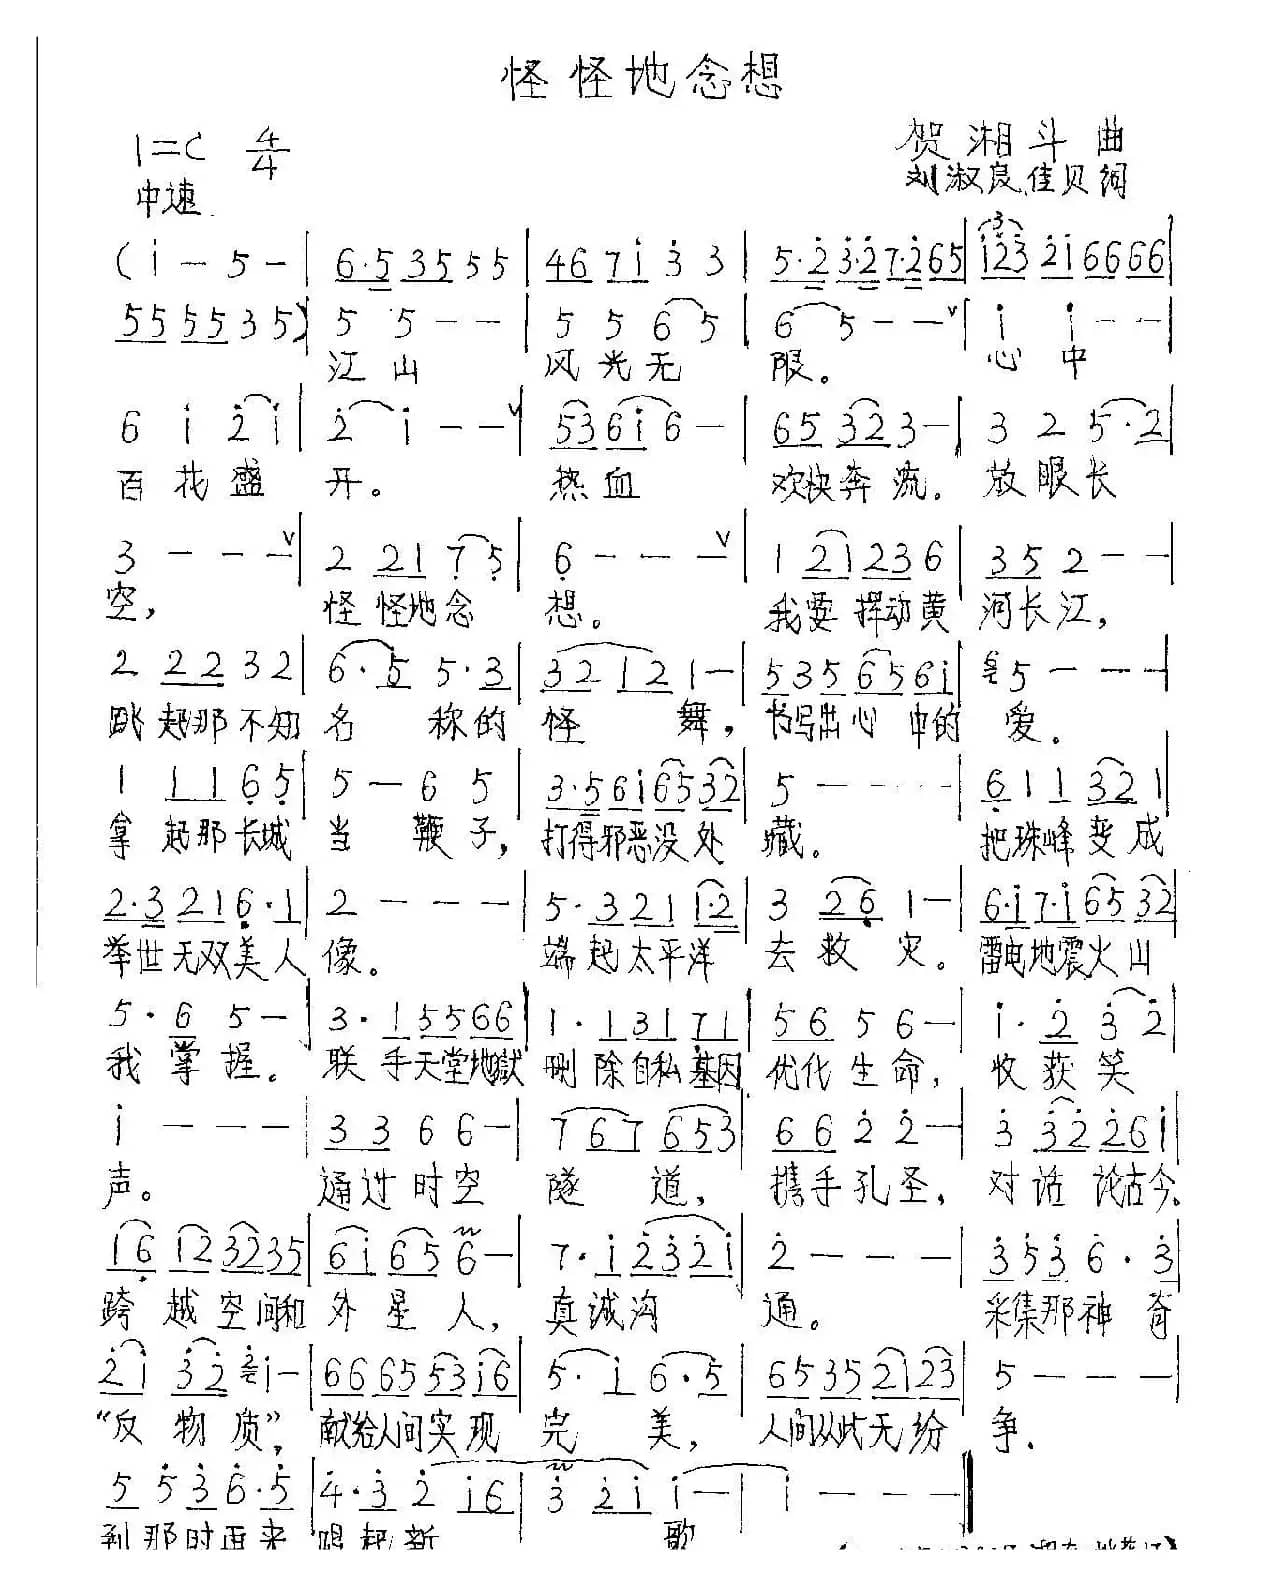 怪怪地念想
1=C 4/4
贺湘斗 曲
中速
刘淑良,佳贝词
(i — 5 — | 6·5 35 5 5 | 46 7i 3 3 | 5·2 3·2 7·2 65 | i23 2i 66 66
55 55 3 5) | 5 5 — — | 5 5 6 5 | 6 5 — — | i i — —
江山 风光无 限。 心中
6 i 2 i | 2 i — — | 53 6i 6 — | 65 32 3 — | 3 2 5·2
百花盛 开。 热血 欢快奔流。 放眼长
3 — — — | 2 21 7 5 | 6 — — — | 1 21 23 6 | 35 2 — —
空, 怪怪地念 想。 我要挥动黄 河长江,
2 22 3 2 | 6·5 5·3 | 32 12 1 — | 53 5 65 6i | 5 — — —
跳起那不知 名称的 怪舞, 书写出心中的 爱。
1 11 6 5 | 5 — 6 5 | 3·5 6i 65 32 | 5 — — — | 6 1 1 32 1
拿起那长城 当鞭子, 打得邪恶没处 藏。 把珠峰变成
2·3 21 6·1 | 2 — — — | 5·3 21 1·2 | 3 26 1 — | 6·i 7·i 65 32
举世无双美人 像。 端起太平洋 去救灾。 雷电地震火山
5·6 5 — | 3·1 55 66 | 1·1 31 71 | 56 5 6 — | i·2 3 2
我掌握。 联手天堂地獄 删除自私基因 优化生命, 收获笑
i — — — | 33 6 6 — | 7 67 6 53 | 66 2 2 — | 3 32 26 i
声。 通过时空 隧道, 携手孔圣, 对话论古今。
16 12 32 35 | 6i 65 6 — | 7·i 23 2i | 2 — — — | 35 3 6·3
跨越空间和 外星人, 真诚沟 通。 采集那神奇
2i 32 i — | 66 65 53 i6 | 5·i 6·5 | 65 35 2i 23 | 5 — — —
“反物质”, 献给人间实现 完美, 人间从此无纷 争.
5 53 6·5 | 4·3 2 i6 | 3 2i i — | i — — —
到那时再来 唱起新 歌